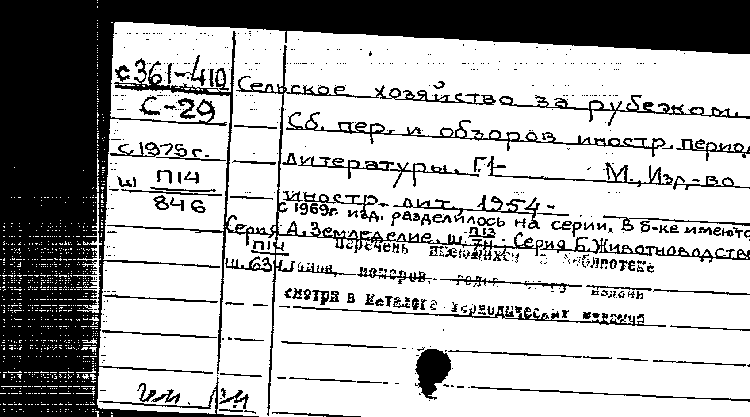 с361-410
С-29
с 1975г.
ш П14
846
Сельское хозяйство за рубежом.
Сб. пер. и обзоров иностр. период
литературы. [1- М., Изд-во
иностр. лит., 1954-
с 1969г изд. разделилось на серии. В б-ке имеютс
Серия А. Земледелие. ш. П13 ; Серия Б. Животноводство
П14
ш. 634
Перечень имеющихся в библиотеке
томов, номеров, годов издани
смотри в каталоге периодических изданий